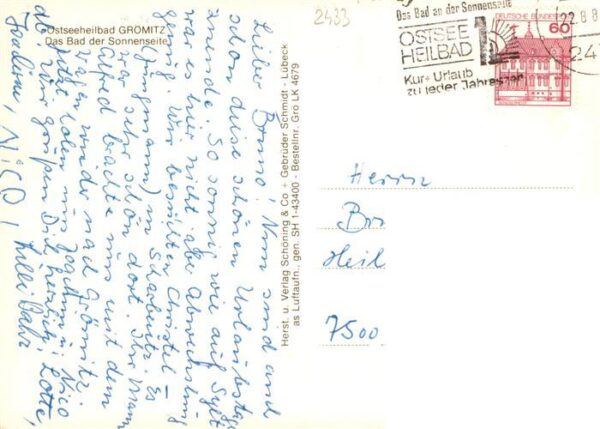 Ostseeheilbad GRÖMITZ
Das Bad der Sonnenseite
Lieber Bruno! Nun sind auch
schon diese schönen Urlaubstage
zu Ende. So sonnig wie auf Sylt
war es hier nicht abe Abwechslung
genug. Wir besuchten Christel
(Jungmann) in Scharbeutz. Es
war sehr schön dort. Ihr Mann
Alfred brachte uns mit dem
Wagen wieder nach Grömitz.
Jetzt holen uns Joachim u. Nico
ab. Wir grüßen Dich herzlich, Lotte,
Joachim, NiCO,
Herst. u. Verlag Schöning & Co + Gebrüder Schmidt - Lübeck
as Luftaufn., gen. SH 1-43400 - Bestellnr. Gro LK 4679
2433
Das Bad an der Sonnenseite
OSTSEE
HEILBAD
Kur + Urlaub
zu jeder Jahreszeit
DEUTSCHE BUNDES
60
22.8.8
24
Herrn
Br
Heil
7500